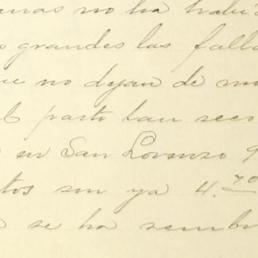 no ha habi
grandes las falla
no dejan de
el pasto tan seco
en San Lorenzo 9
tos son ya 4.70
se ha sembr